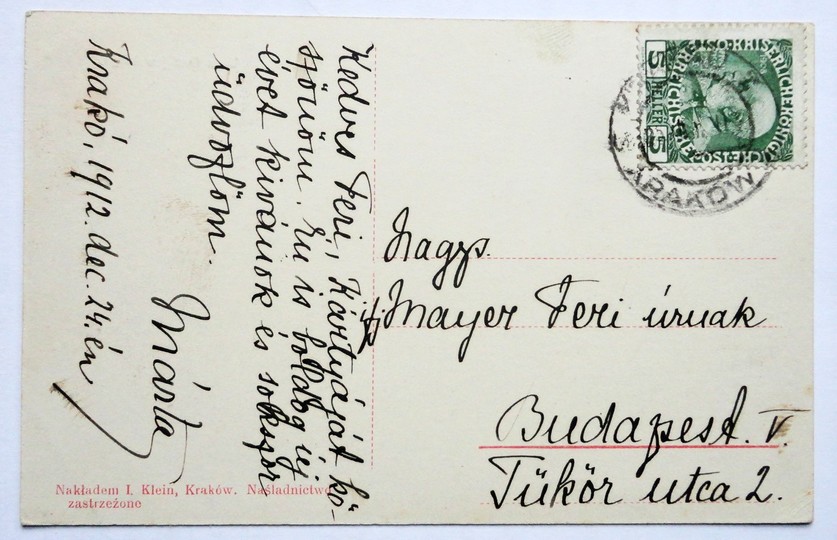 Krakó, 1912. dec. 24.én
Kedves Feri, Kártyáját kö-
szönöm. Én is boldog új
évet kivánok és sokszor
üdvözlöm.
Márta
Nagys.
ifj Mayer Feri úrnak
Budapest. V.
Tükör utca 2.
Nakładem I. Klein, Kraków. Naśladnictwo
zastrzeżone
5 HELLER 5
KAISERLICHE KÖNIGL.
ÖSTERREICHISCHE POST
KRAKÓW